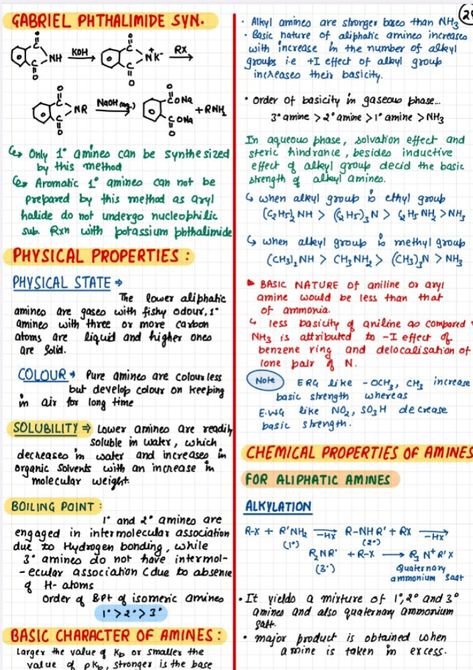 GABRIEL PHTHALIMIDE SYN.
O
C
NH
C
O
KOH
O
C
N⁻K⁺
C
O
RX
O
C
NR
C
O
NaOH(aq.)
O
C ONa
C ONa
O
+ RNH₂
Only 1° amines can be synthesized
by this method
Aromatic 1° amines can not be
prepared by this method as aryl
halide do not undergo nucleophilic
sub. Rxn with potassium phthalimide
PHYSICAL PROPERTIES :
PHYSICAL STATE →
The lower aliphatic
amines are gases with fishy odour, 1°
amines with three or more carbon
atoms are liquid and higher ones
are solid.
COLOUR → Pure amines are colourless
but develop colour on keeping
in air for long time
SOLUBILITY → Lower amines are readily
soluble in water, which
decreases in water and increases in
organic solvents with an increase in
molecular weight.
BOILING POINT :
1° and 2° amines are
engaged in intermolecular association
due to Hydrogen bonding, while
3° amines do not have intermol-
-ecular association (due to absence
of H- atoms
Order of B.Pt of isomeric amines
1° > 2° > 3°
BASIC CHARACTER OF AMINES :
Larger the value of Kb or smaller the
value of pKb, stronger is the base
• Alkyl amines are stronger bases than NH₃
• Basic nature of aliphatic amines increases
with increase in the number of alkyl
groups i.e +I effect of alkyl group
increases their basicity.
• Order of basicity in gaseous phase...
3° amine > 2° amine > 1° amine > NH₃
In aqueous phase, solvation effect and
steric hindrance, besides inductive
effect of alkyl group decid the basic
strength of alkyl amines.
when alkyl group is ethyl group
(C₂H₅)₂NH > (C₂H₅)₃N > C₂H₅NH₂ > NH₃
when alkyl group is methyl group
(CH₃)₂NH > CH₃NH₂ > (CH₃)₃N > NH₃
BASIC NATURE of aniline or aryl
amine would be less than that
of ammonia.
less basicity of aniline as compared
NH₃ is attributed to -I effect of
benzene ring and delocalisation of
lone pair of N.
Note ERG like -OCH₃, CH₃ increase
basic strength whereas
EWG like NO₂, SO₃H decrease
basic strength.
CHEMICAL PROPERTIES OF AMINES
FOR ALIPHATIC AMINES
ALKYLATION
R-X + R'NH₂ → R-NHR' + RX →
(1°) -HX (2°) -HX
R₂NR' + R-X → R₃N⁺R'X
(3°) Quaternary
ammonium salt
• It yields a mixture of 1°, 2° and 3°
amines and also quaternary ammonium
salt.
• major product is obtained when
amine is taken in excess.